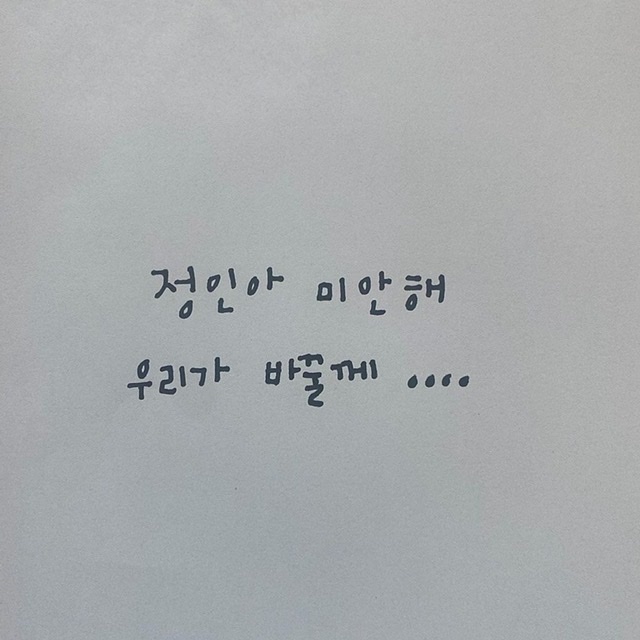 정인아 미안해
우리가 바꿀께 ....